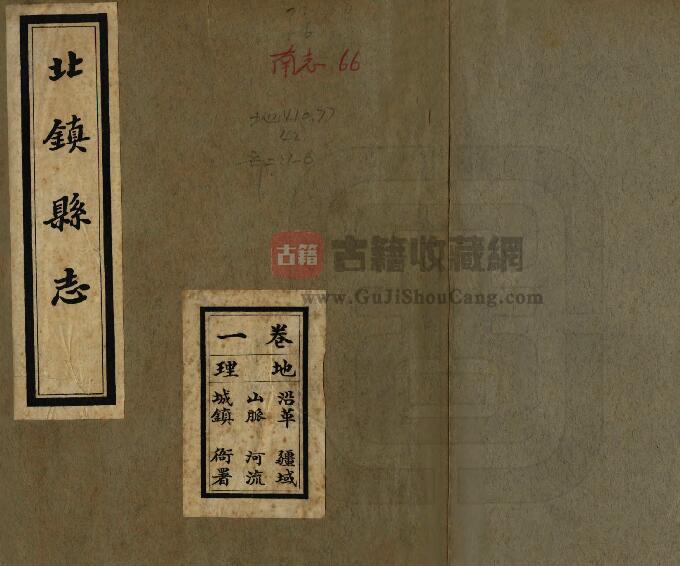 北鎮縣志
南志 66
古籍
古籍收藏網
www.GuJiShouCang.com
卷一
地理
沿革 疆域
山脈 河流
城鎮 衙署